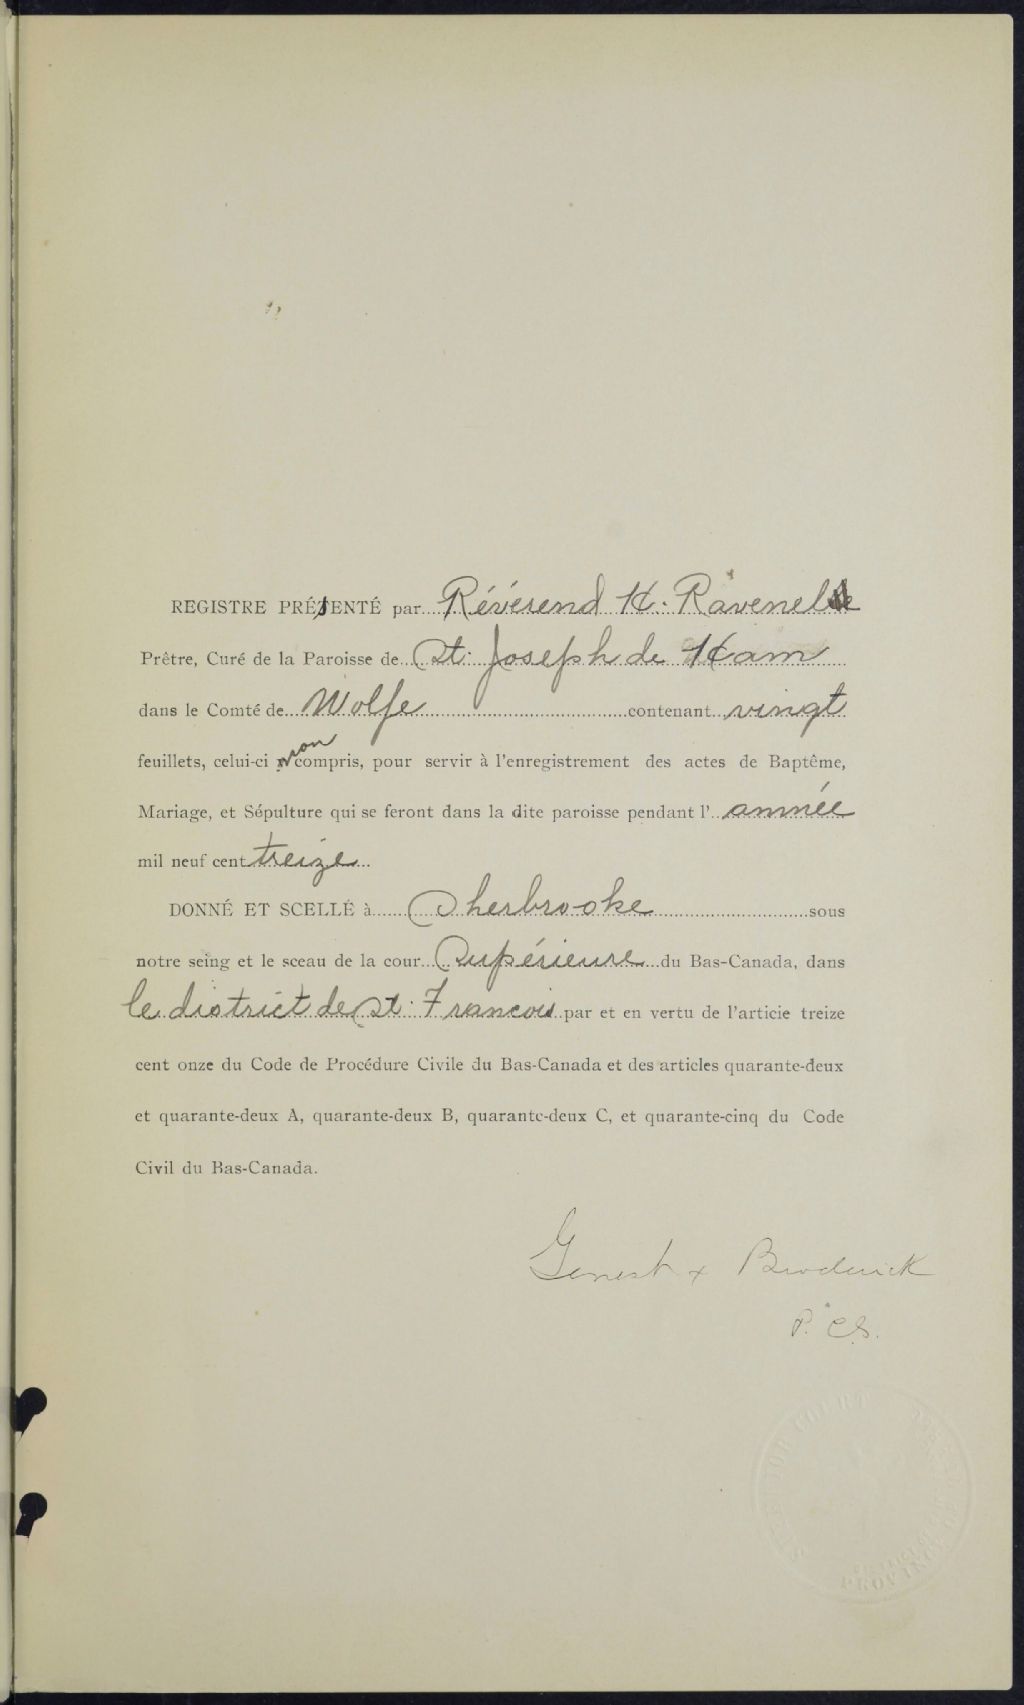 REGISTRE PRÉSENTÉ par Révérend H. Ravenelle
Prêtre, Curé de la Paroisse de St. Joseph de Ham
dans le Comté de Wolfe contenant vingt
feuillets, celui-ci non compris, pour servir à l'enregistrement des actes de Baptême,
Mariage, et Sépulture qui se feront dans la dite paroisse pendant l' année
mil neuf cent treize
DONNÉ ET SCELLÉ à Sherbrooke sous
notre seing et le sceau de la cour Supérieure du Bas-Canada, dans
le district de St. Francois par et en vertu de l'articie treize
cent onze du Code de Procédure Civile du Bas-Canada et des articles quarante-deux
et quarante-deux A, quarante-deux B, quarante-deux C, et quarante-cinq du Code
Civil du Bas-Canada.
Genest & Broderick
P. C.S.
SUPERIOR COURT
PROVINCE OF